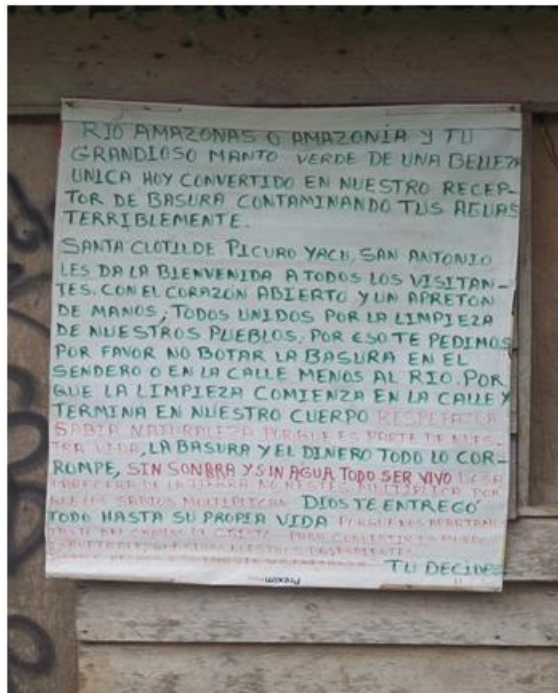 RIO AMAZONAS O AMAZONIA Y TU
GRANDIOSO MANTO VERDE DE UNA BELLEZA
UNICA HOY CONVERTIDO EN NUESTRO RECEP-
TOR DE BASURA CONTAMINANDO TUS AGUAS
TERRIBLEMENTE.
SANTA CLOTILDE PICURO YACU, SAN ANTONIO
LES DA LA BIENVENIDA A TODOS LOS VISITAN-
TES. CON EL CORAZÓN ABIERTO Y UN APRETON
DE MANOS, TODOS UNIDOS POR LA LIMPIEZA
DE NUESTROS PUEBLOS, POR ESO TE PEDIMOS
POR FAVOR NO BOTAR LA BASURA EN EL
SENDERO O EN LA CALLE MENOS AL RIO. POR
QUE LA LIMPIEZA COMIENZA EN LA CALLE Y
TERMINA EN NUESTRO CUERPO RESPETA LA
SABIA NATURALEZA PORQUE ES PARTE DE NUES-
TRA VIDA, LA BASURA Y EL DINERO TODO LO COR-
ROMPE, SIN SONBRA Y SIN AGUA TODO SER VIVO DESA
PARECERA DE LA TIERRA NO MULTIPLICA POR
QUE LOS SABIOS MULTIPLICAN DIOS TE ENTREGÓ
TODO HASTA SU PROPIA VIDA
TU DECIDES